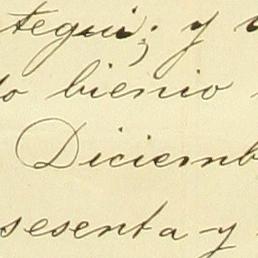 tegui; y
do bienio
Diciemb
sesenta y